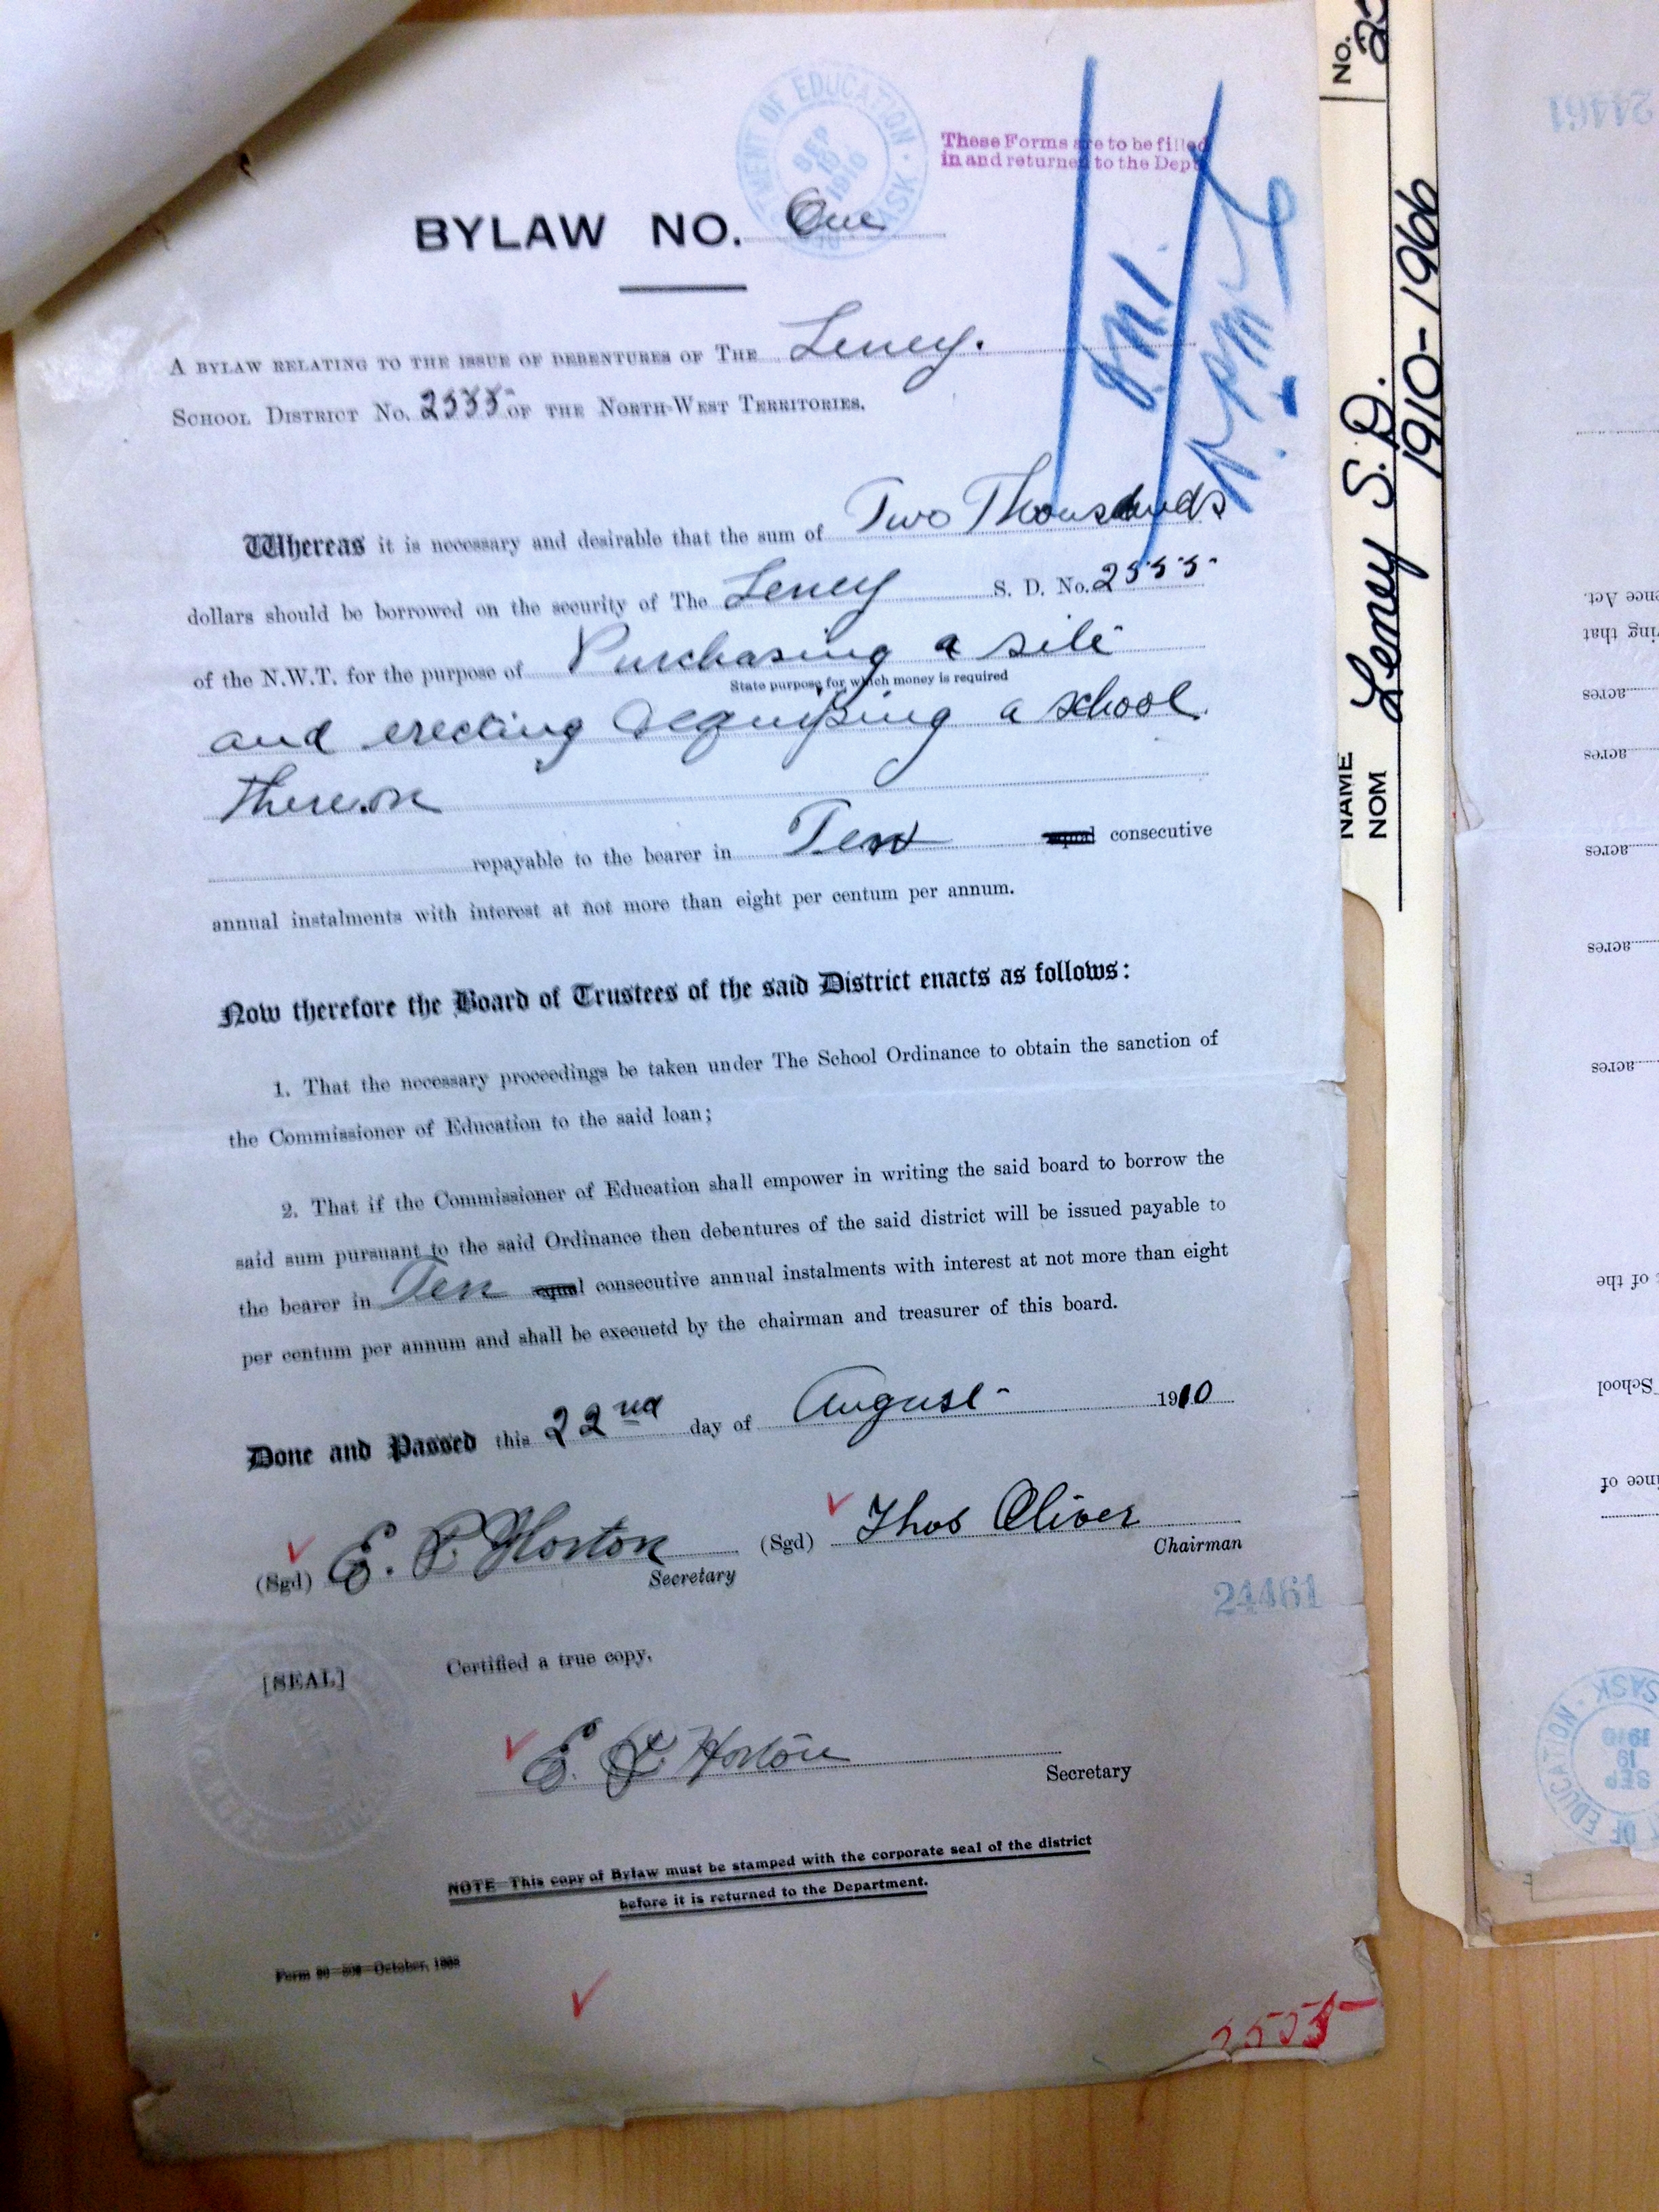 TMENT OF EDUCATION · SASK
SEP
1910
These Forms are to be filled
in and returned to the Dept
BYLAW NO. One
A BYLAW RELATING TO THE ISSUE OF DEBENTURES OF THE Leney.
SCHOOL DISTRICT NO. 2555 OF THE NORTH-WEST TERRITORIES.
Whereas it is necessary and desirable that the sum of Two Thousands
dollars should be borrowed on the security of The Leney S. D. No. 2555
of the N.W.T. for the purpose of Purchasing a site
State purpose for which money is required
and erecting & equiping a school
thereon
repayable to the bearer in Ten equal consecutive
annual instalments with interest at not more than eight per centum per annum.
Now therefore the Board of Trustees of the said District enacts as follows:
1. That the necessary proceedings be taken under The School Ordinance to obtain the sanction of
the Commissioner of Education to the said loan;
2. That if the Commissioner of Education shall empower in writing the said board to borrow the
said sum pursuant to the said Ordinance then debentures of the said district will be issued payable to
the bearer in Ten equal consecutive annual instalments with interest at not more than eight
per centum per annum and shall be execuetd by the chairman and treasurer of this board.
Done and Passed this 22nd day of August 1910
(Sgd) E. P. Horton (Sgd) Thos Oliver
Secretary Chairman
24461
[SEAL] Certified a true copy.
E. P. Horton
Secretary
NOTE—This copy of Bylaw must be stamped with the corporate seal of the district
before it is returned to the Department.
2555
NO.
NAME
NOM
Leney S. D.
1910-1966
24461
ence Act.
ring that
acres
acres
acres
acres
acres
of the
School
ince of
OF EDUCATION · SASK
SEP
19
1910